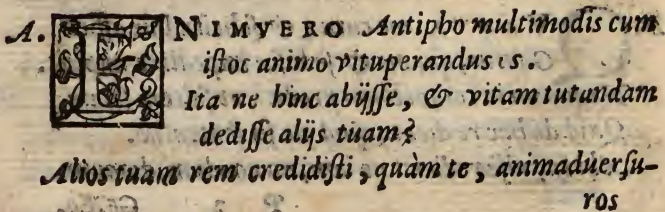 A. ENIMVERO Antipho multimodis cum
istoc animo vituperandus es.
Ita ne hinc abijsse, & vitam tutandam
dedisse alijs tuam?
Alios tuam rem credidisti, quàm te, animaduersu-
ros